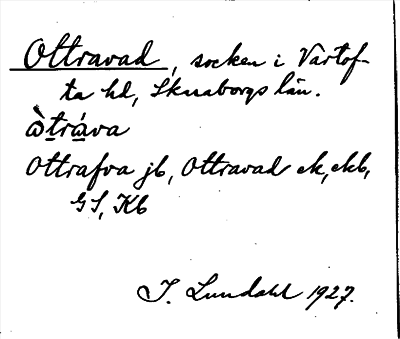 Ottravad, socken i Vartof-
ta hd, Skaraborgs län.
ò̀tráva
Ottrafva jb, Ottravad ek, ekb,
GS, Kb
I. Lundahl 1927.